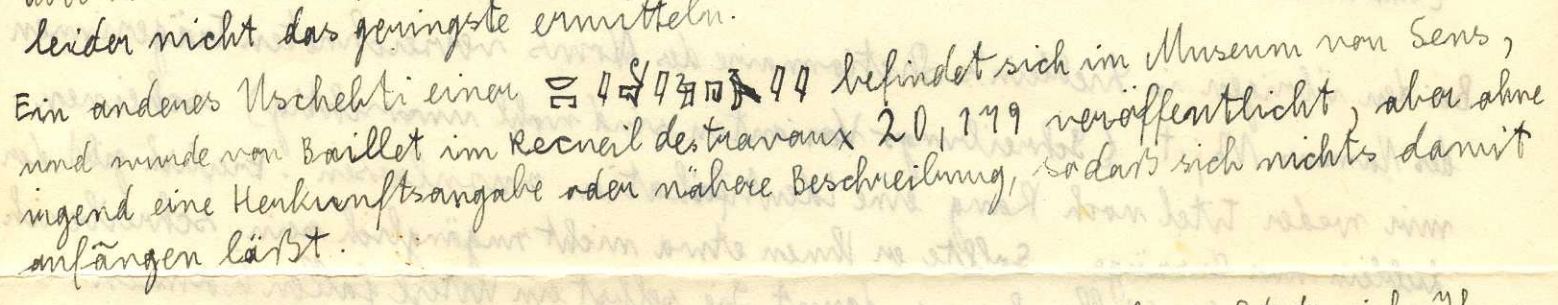 leider nicht das geringste ermitteln.
Ein anderes Uschebti einer befindet sich im Museum von Sens,
und wurde von Baillet im Recueil des travaux 20, 179 veröffentlicht, aber ohne
irgend eine Herkunftsangabe oder nähere Beschreibung, sodaß sich nichts damit
anfangen läßt.